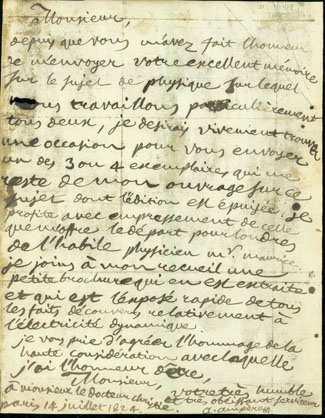 à Monsieur,
depuis que vous m'avez fait l'honneur
de m'envoyer votre excellent mémoire
sur le sujet de physique sur lequel
nous travaillons particulièrement
tous deux, je desirais vivement trouver
une occasion pour vous envoyer
un des 3 ou 4 exemplaires qui me
reste de mon ouvrage sur ce
sujet dont l'édition est épuisée. je
profite avec empressement de celle
que m'offre le départ pour londres
de l'habile physicien mr. maurice
je joins à mon recueil une
petite brochure qui en est extraite
et qui est l'exposé rapide de tous
les faits découverts relativement à
l'électricité dynamique.
je vous prie d'agréer l'hommage de la
haute considération avec laquelle
j'ai l'honneur d'être,
Monsieur, votre très humble
à monsieur le docteur et très obéissant serviteur
paris 14 juillet 1824 a. ampère